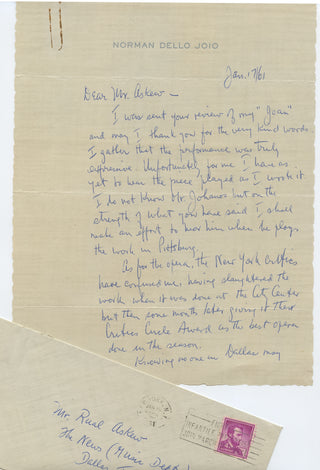 NORMAN DELLO JOIO
Jan. 17/61
Dear Mr. Askew —
I was sent your review of my "Joan"
and may I thank you for the very kind words.
I gather that the performance was truly
expressive. Unfortunately for me I have as
yet to hear the piece played as I wrote it.
I do not know Mr. Johanos but on the
strength of what you have said I shall
make an effort to hear him when he plays
the work in Pittsburg.
As for the opera, the New York Critics
have confused me, having slaughtered the
work when it was done at the City Center
but then some month later giving it their
Critics Circle Award as the best opera
done in the season.
Knowing no one in Dallas may
Mr. Rual Askew
The News (Music Dept.)
Dallas